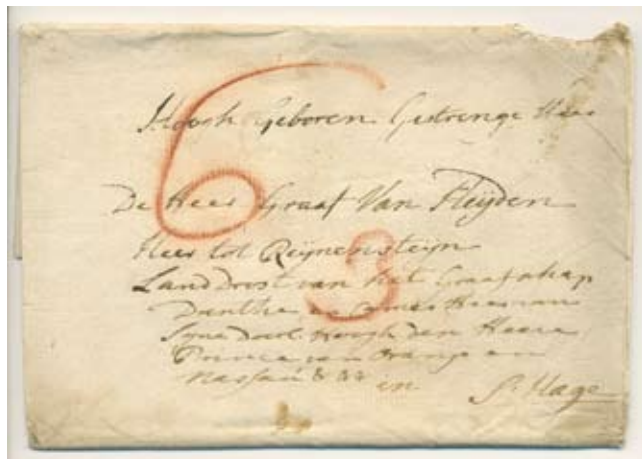 Hoogh Geboren Gestrenge Heer
De Heer Graaf Van Heijden
Heer tot Reijnensteijn
Landdrost van het Graafschap
Drenthe en Camer Heer van
Sijne Doorl. Hoogh. den Heere
Prince van Orange en
Nassau &&& in S. Hage
6
3